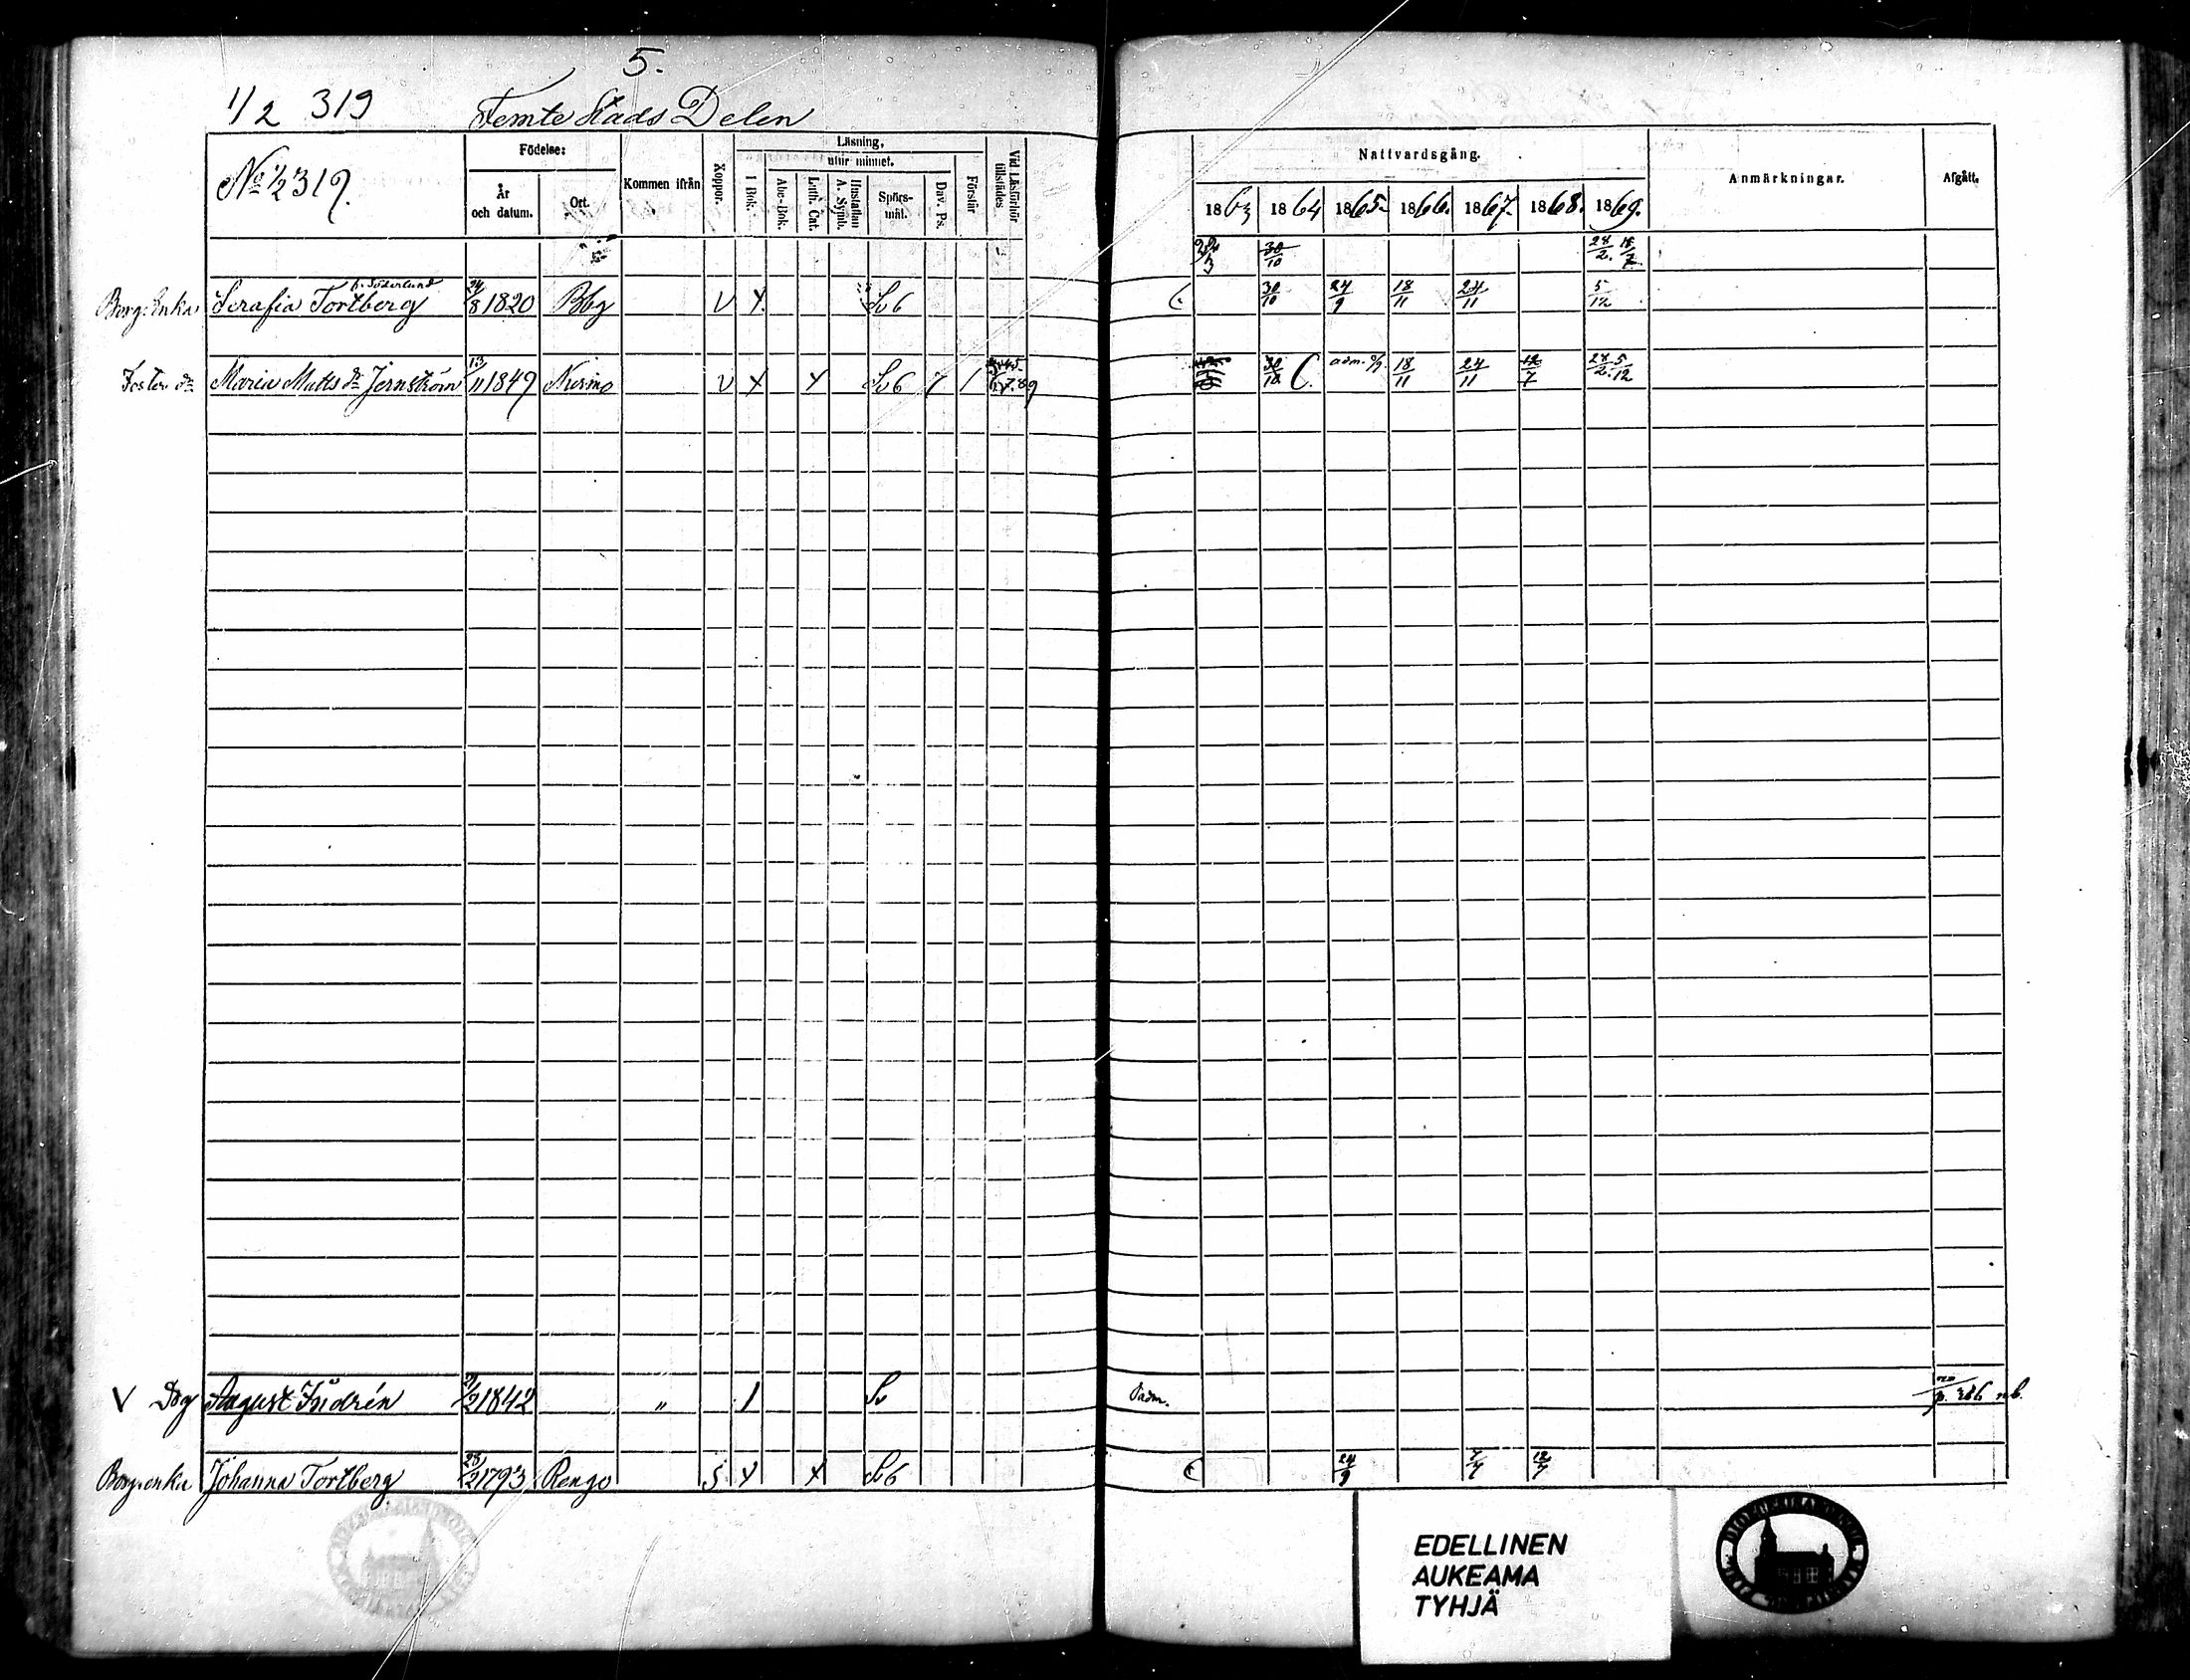 5.
1/2 319 Femte Stads Delen
No 1/2 319.
Födelse:
År och datum.
Ort.
Kommen ifrån
Koppor.
Läsning,
utur minnet.
I Bok.
Abc-Bok.
Luth. Cat.
Hustaflan A. Symb.
Spörs-mål.
Dav. Ps.
Förstår
Vid Läsförhör tillstädes
Nattvardsgång.
1863 1864 1865. 1866. 1867. 1868. 1869.
Anmärkningar.
Afgått.
30/10 28/2.
f. Söderlund
Borg. Enka Serafia Tortberg 24/8 1820 Bbg V X Sv 6 30/10 24/9 18/11 24/11 5/12
Foster dr Maria Matts dr Jernström 13/11 1849 Nurmo V X X Sv 6 7 1 30/10 C. adm. 18/11 24/11 12/7 28/2. 5/12
V Dog August Isidrén 21/2 1842 " 1 Sv p. 386
Borg. enka Johanna Tortberg 23/2 1793 Rengo S X X Sv 6 24/9 7/7 12/7
EDELLINEN
AUKEAMA
TYHJÄ